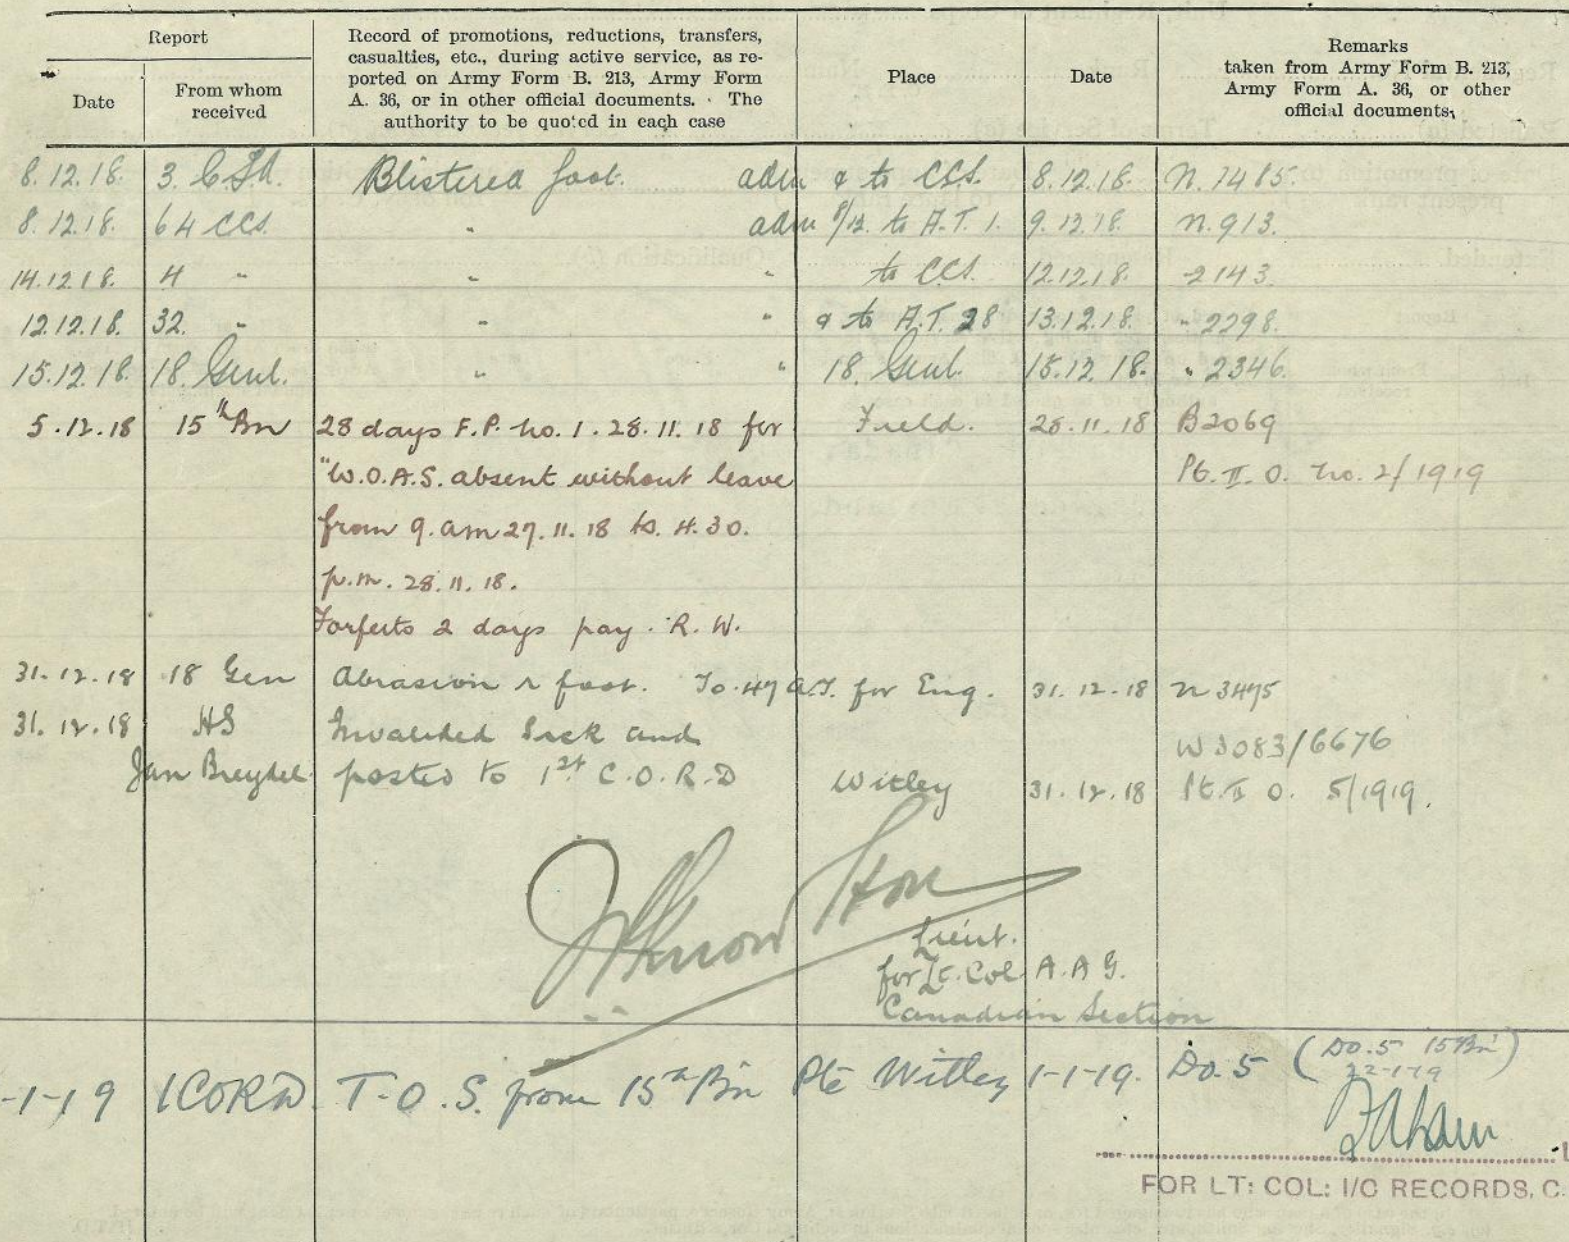 Report
Date
From whom
received
Record of promotions, reductions, transfers,
casualties, etc., during active service, as re-
ported on Army Form B. 213, Army Form
A. 36, or in other official documents. The
authority to be quoted in each case
Place
Date
Remarks
taken from Army Form B. 213,
Army Form A. 36, or other
official documents.
8.12.18. 3. Blistered foot. adm & to CCS. 8.12.18. N. 7485.
8.12.18. 64 CCS. " adm 8/12. to A.T. 1. 9.12.18. N. 913.
14.12.18. 4 " " " to CCS. 12.12.18. - 2143
12.12.18. 32. " " " & to A.T. 28 13.12.18. " 2298.
15.12.18. 18. Genl. " " 18. Genl. 15.12.18. " 2346.
5.12.18 15th Bn 28 days F.P. No. 1. 28.11.18 for Field. 28.11.18 B2069
"W.O.A.S. absent without leave Pt. II. O. No. 2/1919
from 9. am 27.11.18 to 4.30.
p.m. 28.11.18.
Forfeits 2 days pay. R.W.
31.12.18 18 Gen Abrasion r foot. To 47 A.T. for Eng. 31.12.18 N 3475
31.12.18 HS Invalided Sick and W3083/6676
Jan Breydel posted to 1st C.O.R.D Witley 31.12.18 Pt. II O. 5/1919.
Lieut.
for Lt. Col A.A.G.
Canadian Section
-1-19 1CORD T.O.S. from 15th Bn Pte Witley 1-1-19. Do. 5 (DO.5 15Bn
22-1-19)
FOR LT: COL: I/C RECORDS, C.